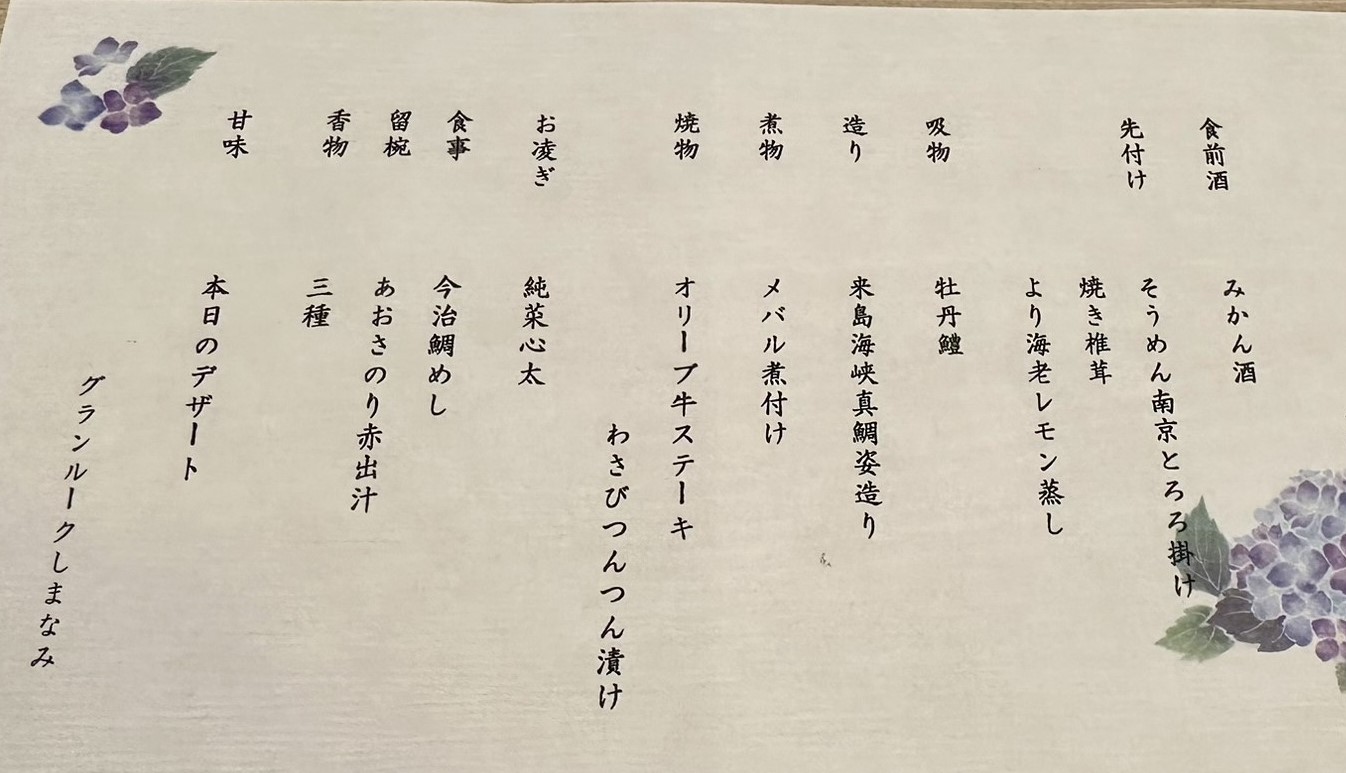 食前酒　みかん酒
先付け　そうめん南京とろろ掛け
焼き椎茸
より海老レモン蒸し
吸物　牡丹鱧
造り　来島海峡真鯛姿造り
煮物　メバル煮付け
焼物　オリーブ牛ステーキ
わさびつんつん漬け
お凌ぎ　純菜心太
食事　今治鯛めし
留椀　あおさのり赤出汁
香物　三種
甘味　本日のデザート
グランルークしまなみ